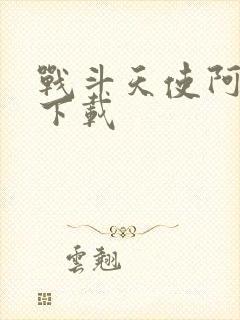 戰斗天使阿
下載
雲翹